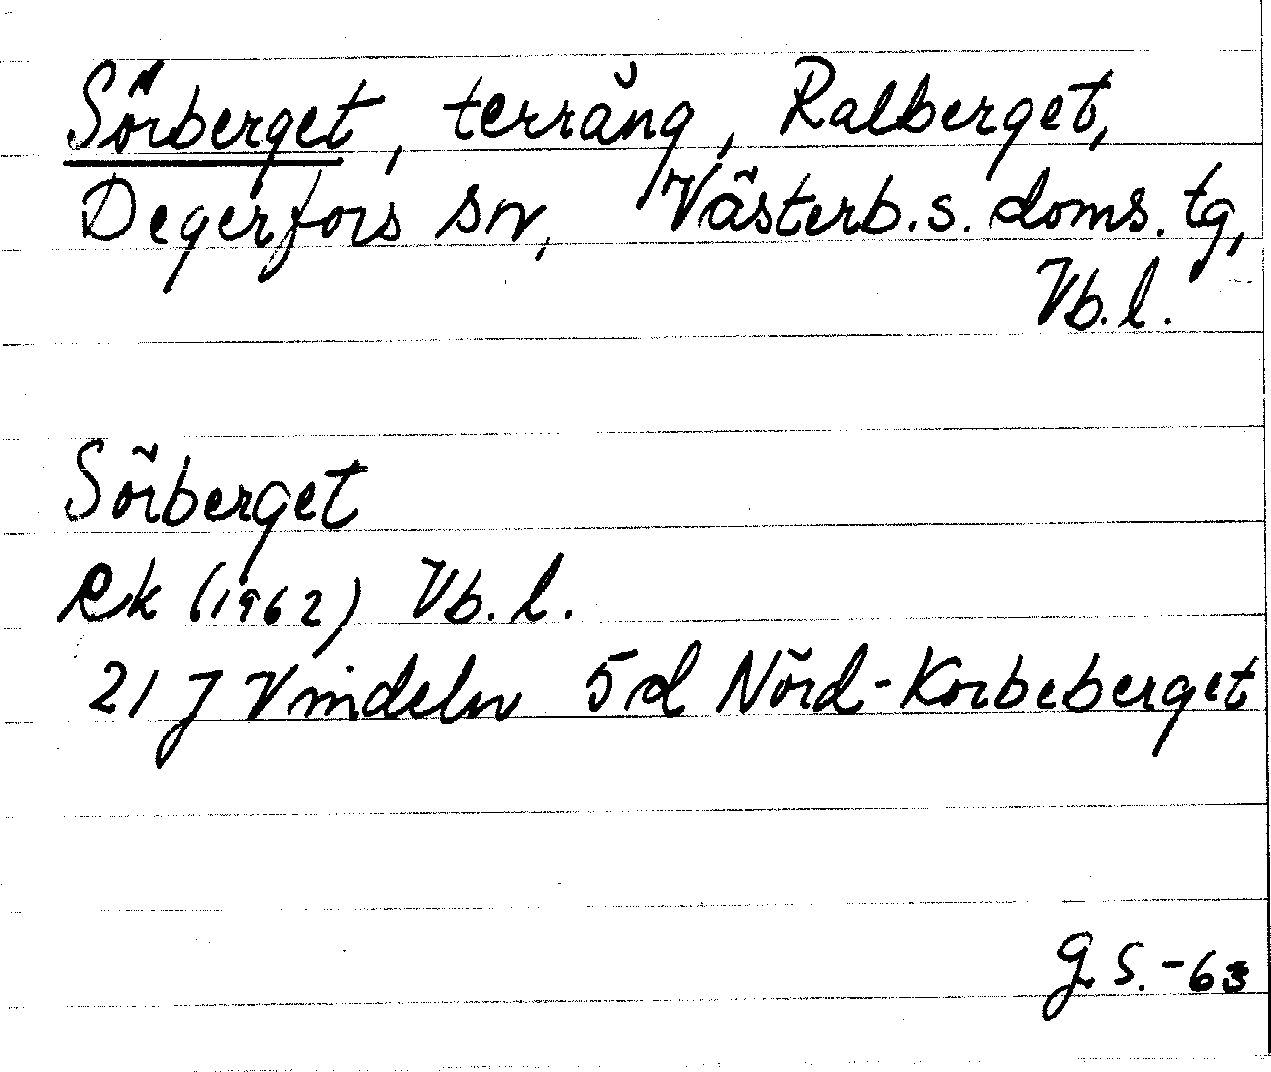 Sörberget, terräng, Ralberget,
Degerfors sn, Västerb.s. doms. tg,
Vb. l.
Sörberget
Rk (1962) Vb. l.
21 J Vindeln 5d Nörd-Korbeberget
G. S. -63